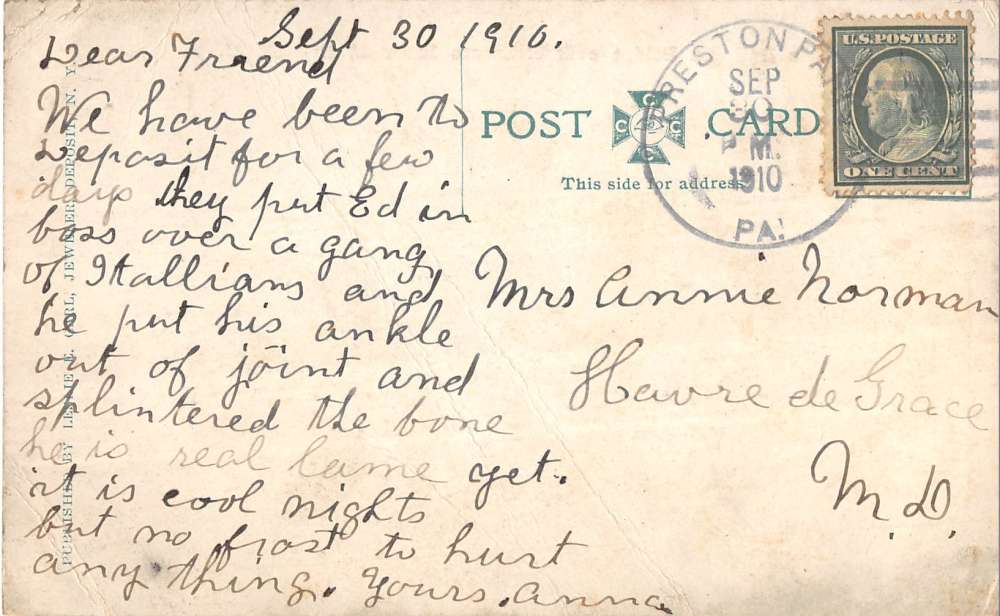 Sept 30 1910.
Dear Friend
We have been to
Deposit for a few
days they put Ed in
boss over a gang
of Itallians and
he put his ankle
out of joint and
splintered the bone
he is real lame yet.
it is cool nights
but no frost to hurt
any thing. Yours. Anna
PUBLISHED BY LESLIE E. CARL, JEWELER, DEPOSIT, N. Y.
POST CARD
This side for address
PRESTON PA
SEP
30
P M.
1910
PA.
U.S. POSTAGE
ONE CENT
Mrs Annie Norman
Havre de Grace
M. D.